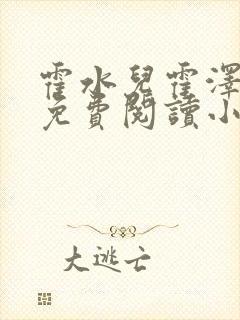 霍水兒霍澤
免費閱讀小
大逃亡